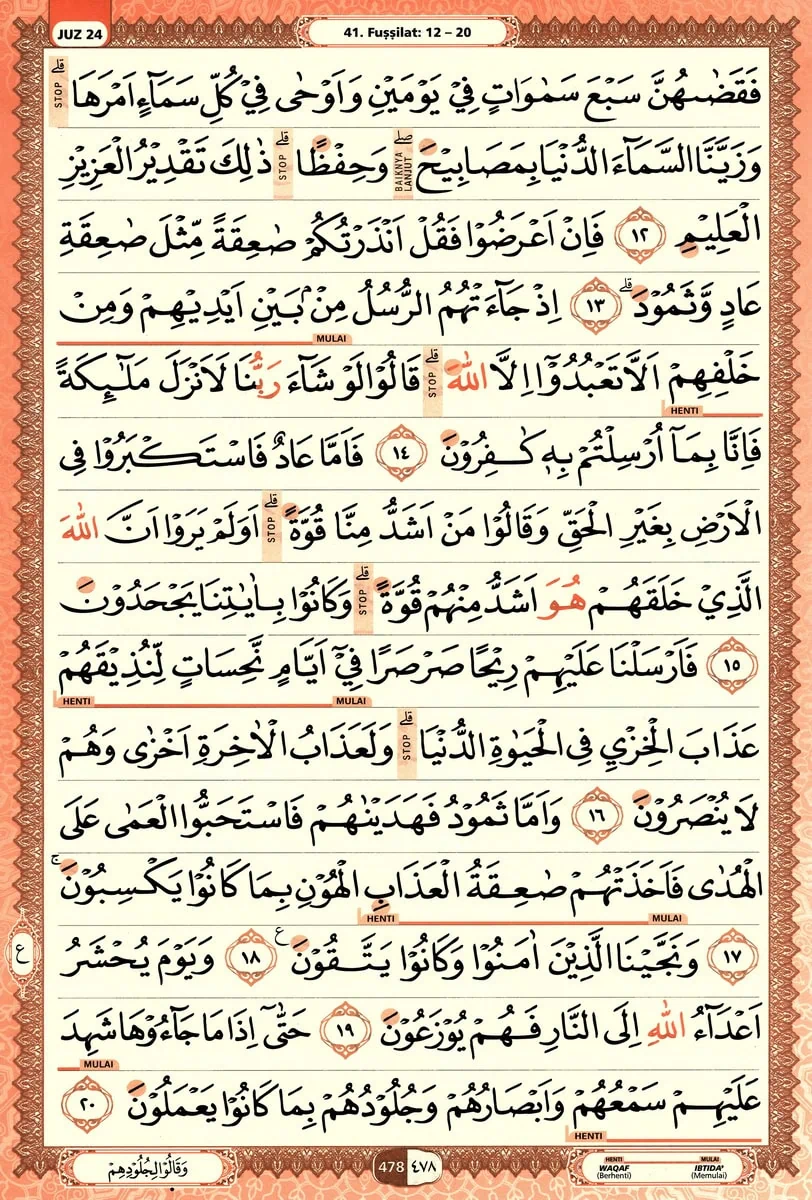 JUZ 24
41. Fuṣṣilat: 12 – 20
فَقَضٰىهُنَّ سَبْعَ سَمٰوَاتٍ فِيْ يَوْمَيْنِ وَاَوْحٰى فِيْ كُلِّ سَمَاۤءٍ اَمْرَهَا ۗ STOP
وَزَيَّنَّا السَّمَاۤءَ الدُّنْيَا بِمَصَابِيْحَ ۖ BAIKNYA LANJUT وَحِفْظًا ۗ STOP ذٰلِكَ تَقْدِيْرُ الْعَزِيْزِ
الْعَلِيْمِ ١٢ فَاِنْ اَعْرَضُوْا فَقُلْ اَنْذَرْتُكُمْ صٰعِقَةً مِّثْلَ صٰعِقَةِ
عَادٍ وَّثَمُوْدَ ۗ ١٣ اِذْ جَاۤءَتْهُمُ الرُّسُلُ مِنْۢ بَيْنِ اَيْدِيْهِمْ وَمِنْ
MULAI
خَلْفِهِمْ اَلَّا تَعْبُدُوْٓا اِلَّا اللّٰهَ ۗ STOP قَالُوْا لَوْ شَاۤءَ رَبُّنَا لَاَنْزَلَ مَلٰۤىِٕكَةً
HENTI
فَاِنَّا بِمَآ اُرْسِلْتُمْ بِهٖ كٰفِرُوْنَ ١٤ فَاَمَّا عَادٌ فَاسْتَكْبَرُوْا فِى
الْاَرْضِ بِغَيْرِ الْحَقِّ وَقَالُوْا مَنْ اَشَدُّ مِنَّا قُوَّةً ۗ STOP اَوَلَمْ يَرَوْا اَنَّ اللّٰهَ
الَّذِيْ خَلَقَهُمْ هُوَ اَشَدُّ مِنْهُمْ قُوَّةً ۗ STOP وَكَانُوْا بِاٰيٰتِنَا يَجْحَدُوْنَ
١٥ فَاَرْسَلْنَا عَلَيْهِمْ رِيْحًا صَرْصَرًا فِيْٓ اَيَّامٍ نَّحِسَاتٍ لِّنُذِيْقَهُمْ
MULAI HENTI
عَذَابَ الْخِزْيِ فِى الْحَيٰوةِ الدُّنْيَا ۗ STOP وَلَعَذَابُ الْاٰخِرَةِ اَخْزٰى وَهُمْ
لَا يُنْصَرُوْنَ ١٦ وَاَمَّا ثَمُوْدُ فَهَدَيْنٰهُمْ فَاسْتَحَبُّوا الْعَمٰى عَلَى
الْهُدٰى فَاَخَذَتْهُمْ صٰعِقَةُ الْعَذَابِ الْهُوْنِ بِمَا كَانُوْا يَكْسِبُوْنَ ۚ
MULAI HENTI
١٧ وَنَجَّيْنَا الَّذِيْنَ اٰمَنُوْا وَكَانُوْا يَتَّقُوْنَ ࣖ ١٨ وَيَوْمَ يُحْشَرُ
ع
اَعْدَاۤءُ اللّٰهِ اِلَى النَّارِ فَهُمْ يُوْزَعُوْنَ ١٩ حَتّٰىٓ اِذَا مَا جَاۤءُوْهَا شَهِدَ
MULAI
عَلَيْهِمْ سَمْعُهُمْ وَاَبْصَارُهُمْ وَجُلُوْدُهُمْ بِمَا كَانُوْا يَعْمَلُوْنَ ٢٠
HENTI
وَقَالُوْا لِجُلُوْدِهِمْ
478 ٤٧٨
HENTI WAQAF (Berhenti)
MULAI IBTIDA' (Memulai)